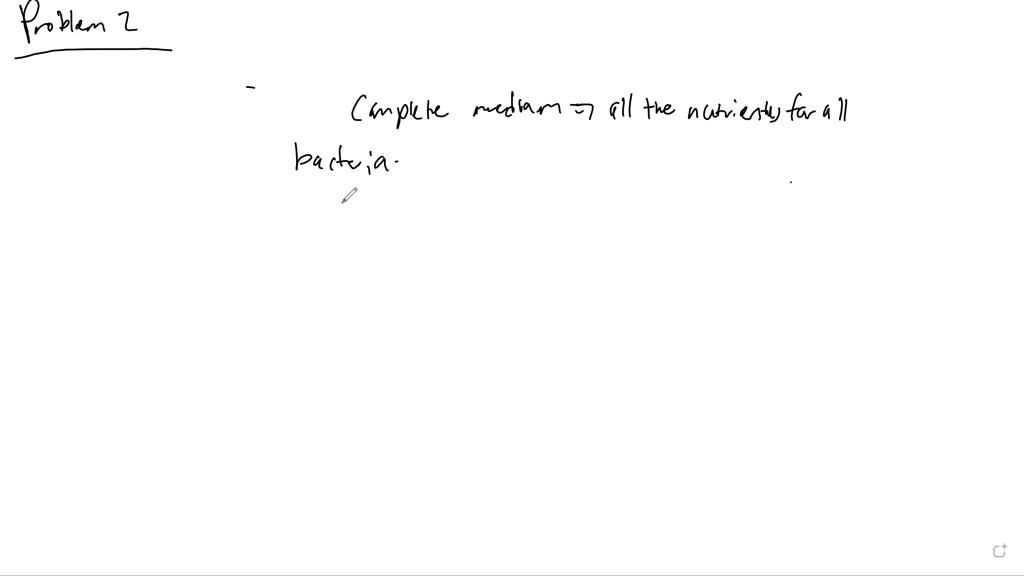 Problem 2
Complete medium => all the nutrients for all
bacteria.